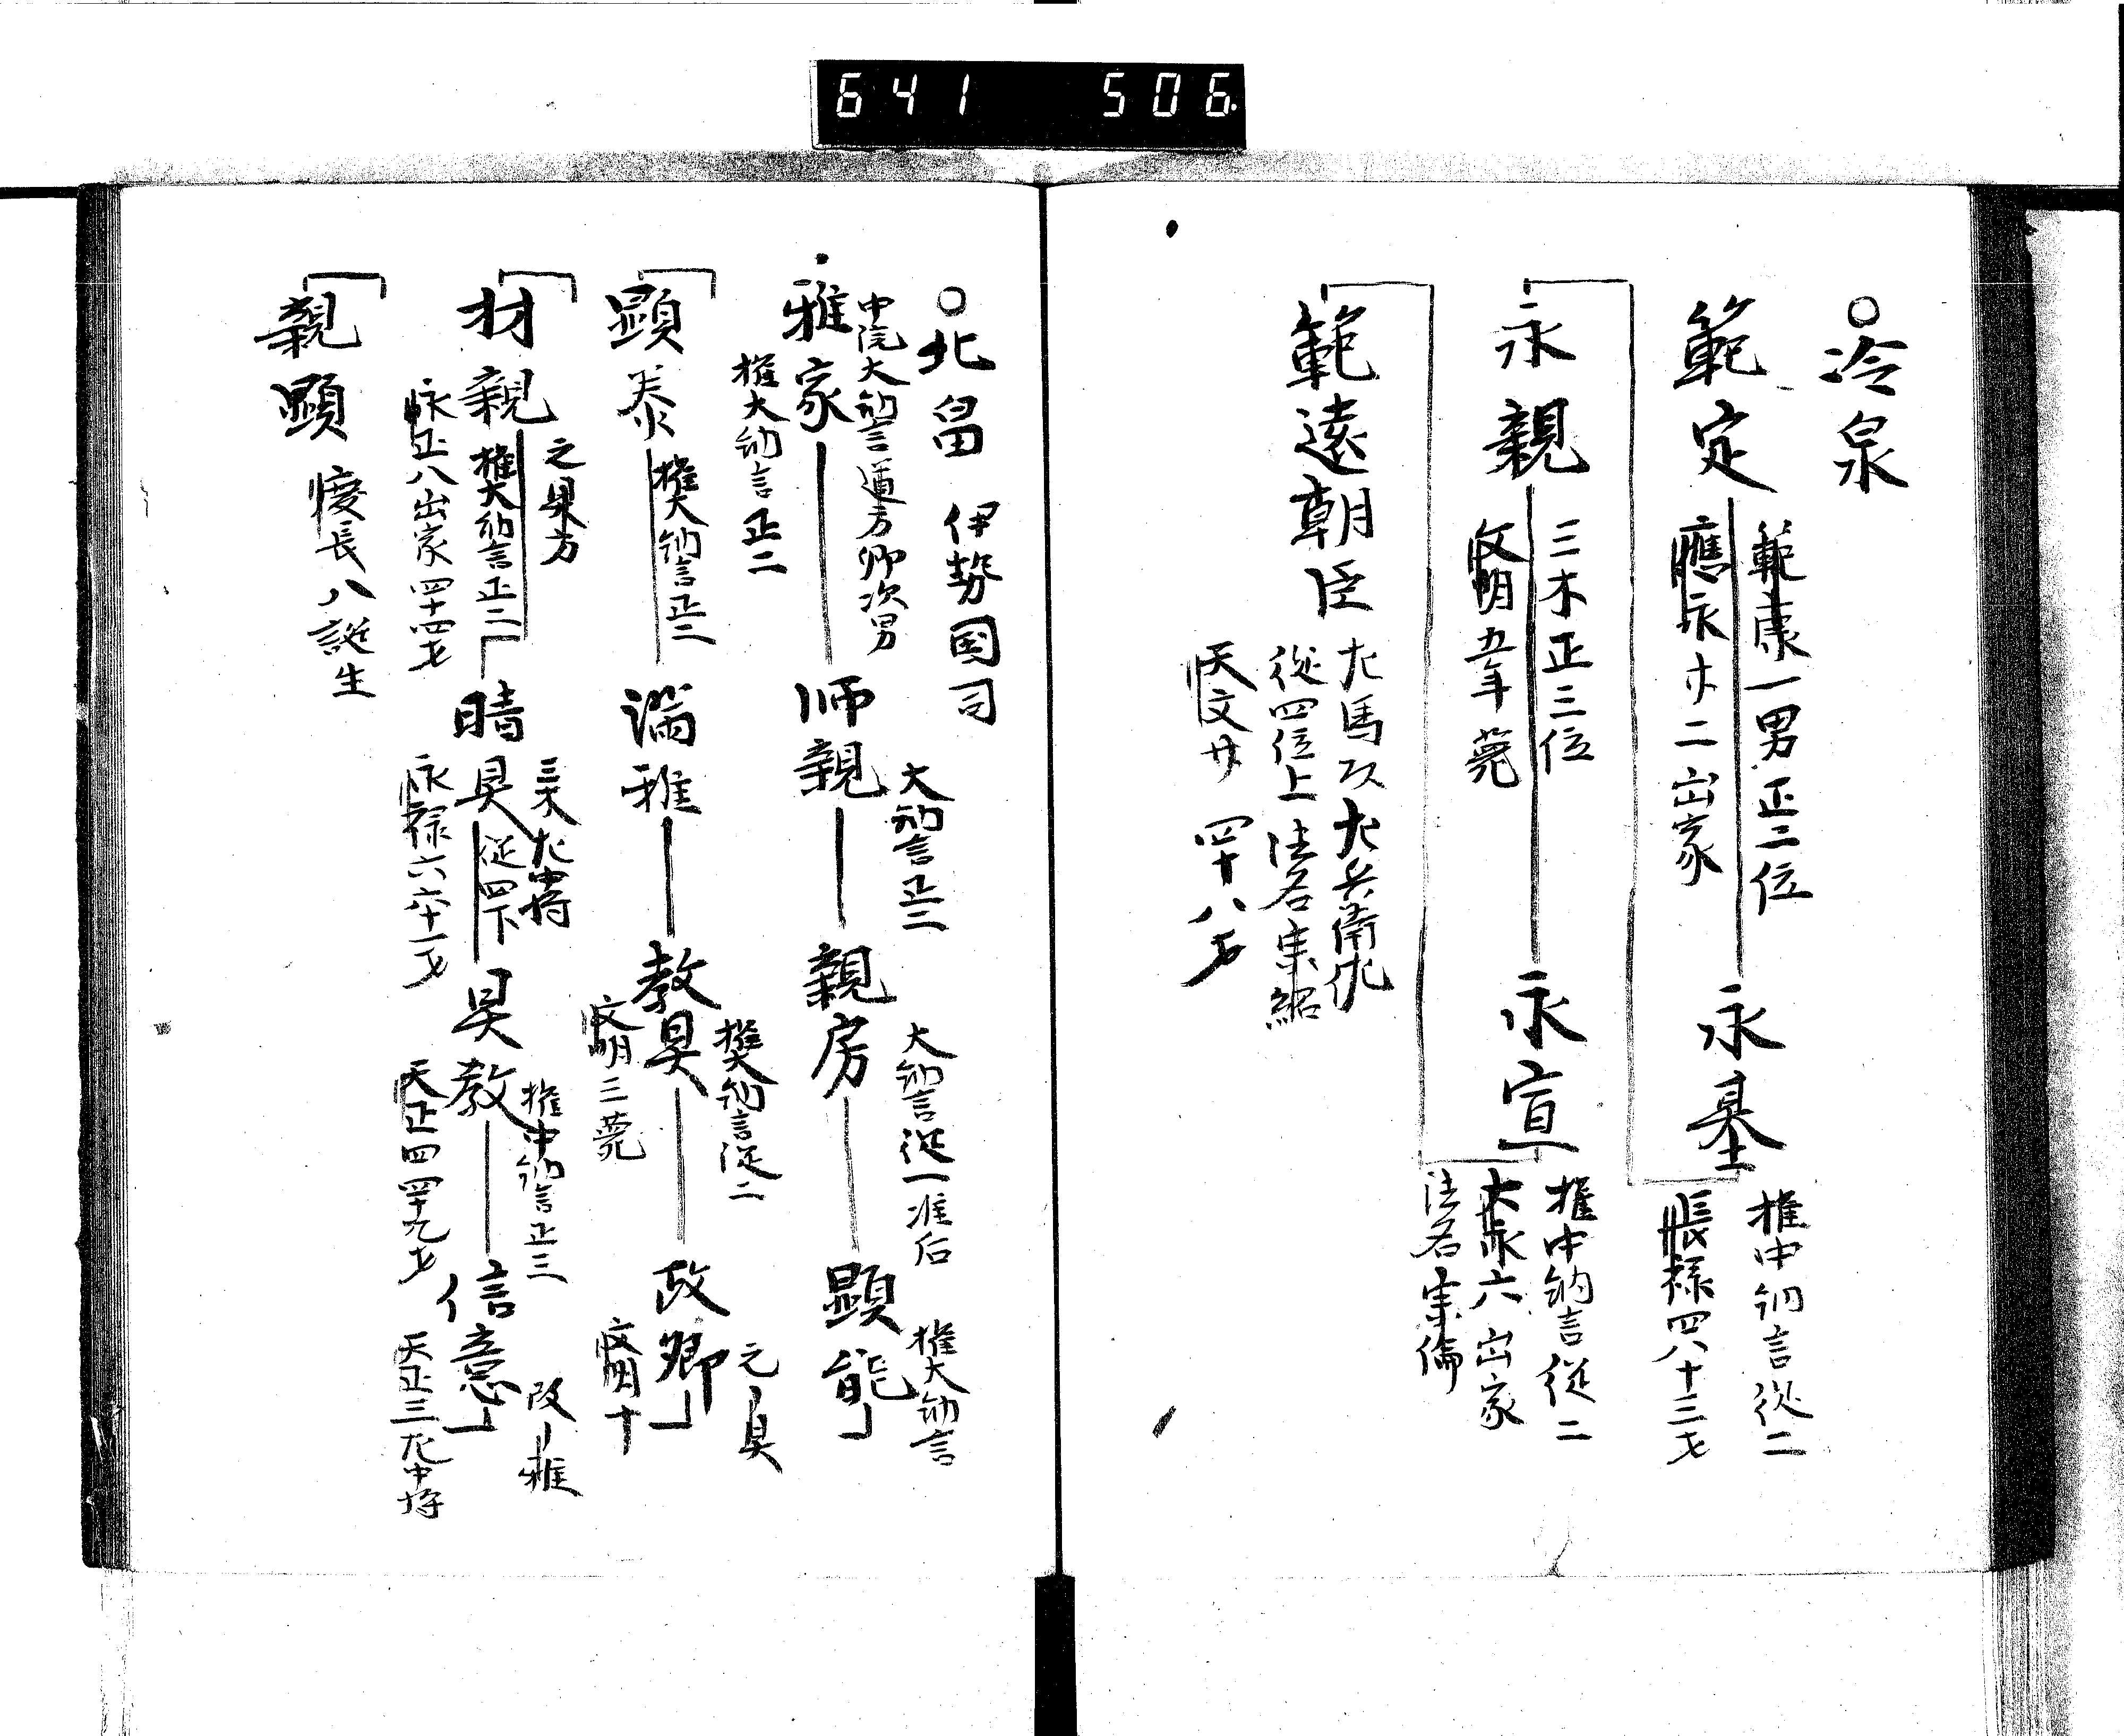 641 506
○冷泉
範定
範康一男正二位
應永廿二出家
永基
権中納言従二
長禄四八十三才
永親
三木正三位
文明五年薨
永宣
権中納言従二
大永六出家
法名宗倫
範遠朝臣
左馬頭左兵衛佐
従四位上法名宗紹
天文廿 四十八才
○北畠 伊勢国司
中院大納言通方卿次男
雅家
権大納言正二
師親
大納言正二
親房
大納言従一准后
顕能
権大納言
顕泰
権大納言正二
満雅
教具
権大納言従二
文明三薨
政郷
元ー具
文明十
材親
元具方
権大納言正二
永正八出家四十四才
晴具
三木左中将
従四下
永禄六六十一才
具教
権中納言正三
天正四四十九才
信意
改ー雅
天正三左中将
親顕
慶長八誕生